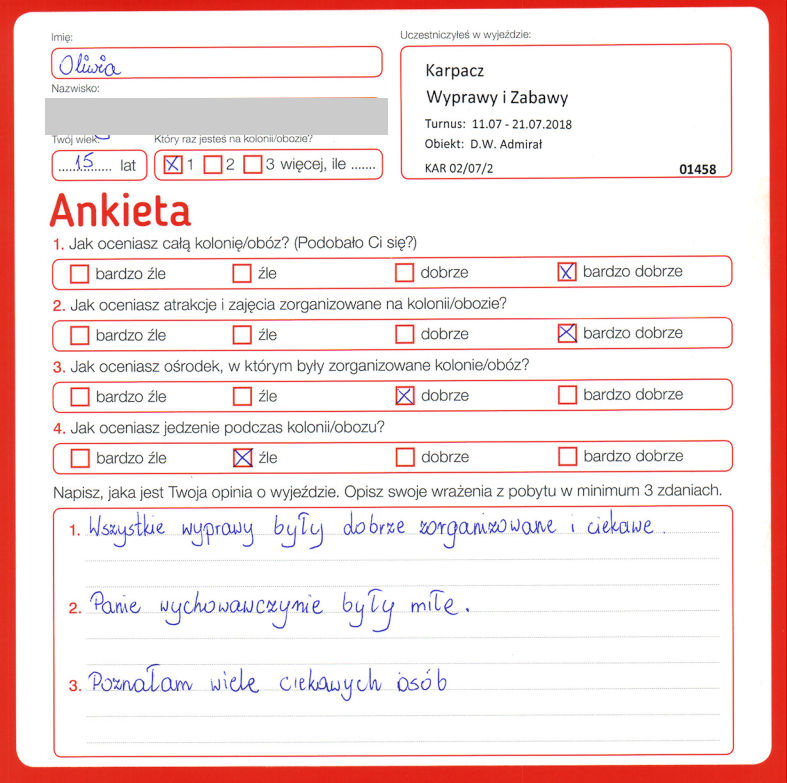 Imię:
Uczestniczyłeś w wyjeździe:
Oliwia
Karpacz
Nazwisko:
Wyprawy i Zabawy
Turnus: 11.07 - 21.07.2018
Obiekt: D.W. Admirał
KAR 02/07/2
01458
Twój wiek:
Który raz jesteś na kolonii/obozie?
15 lat
1 2 3 więcej, ile .......
Ankieta
1. Jak oceniasz całą kolonię/obóz? (Podobało Ci się?)
bardzo źle źle dobrze bardzo dobrze
2. Jak oceniasz atrakcje i zajęcia zorganizowane na kolonii/obozie?
bardzo źle źle dobrze bardzo dobrze
3. Jak oceniasz ośrodek, w którym były zorganizowane kolonie/obóz?
bardzo źle źle dobrze bardzo dobrze
4. Jak oceniasz jedzenie podczas kolonii/obozu?
bardzo źle źle dobrze bardzo dobrze
Napisz, jaka jest Twoja opinia o wyjeździe. Opisz swoje wrażenia z pobytu w minimum 3 zdaniach.
1. Wszystkie wyprawy były dobrze zorganizowane i ciekawe.
2. Panie wychowawczynie były miłe.
3. Poznałam wiele ciekawych osób